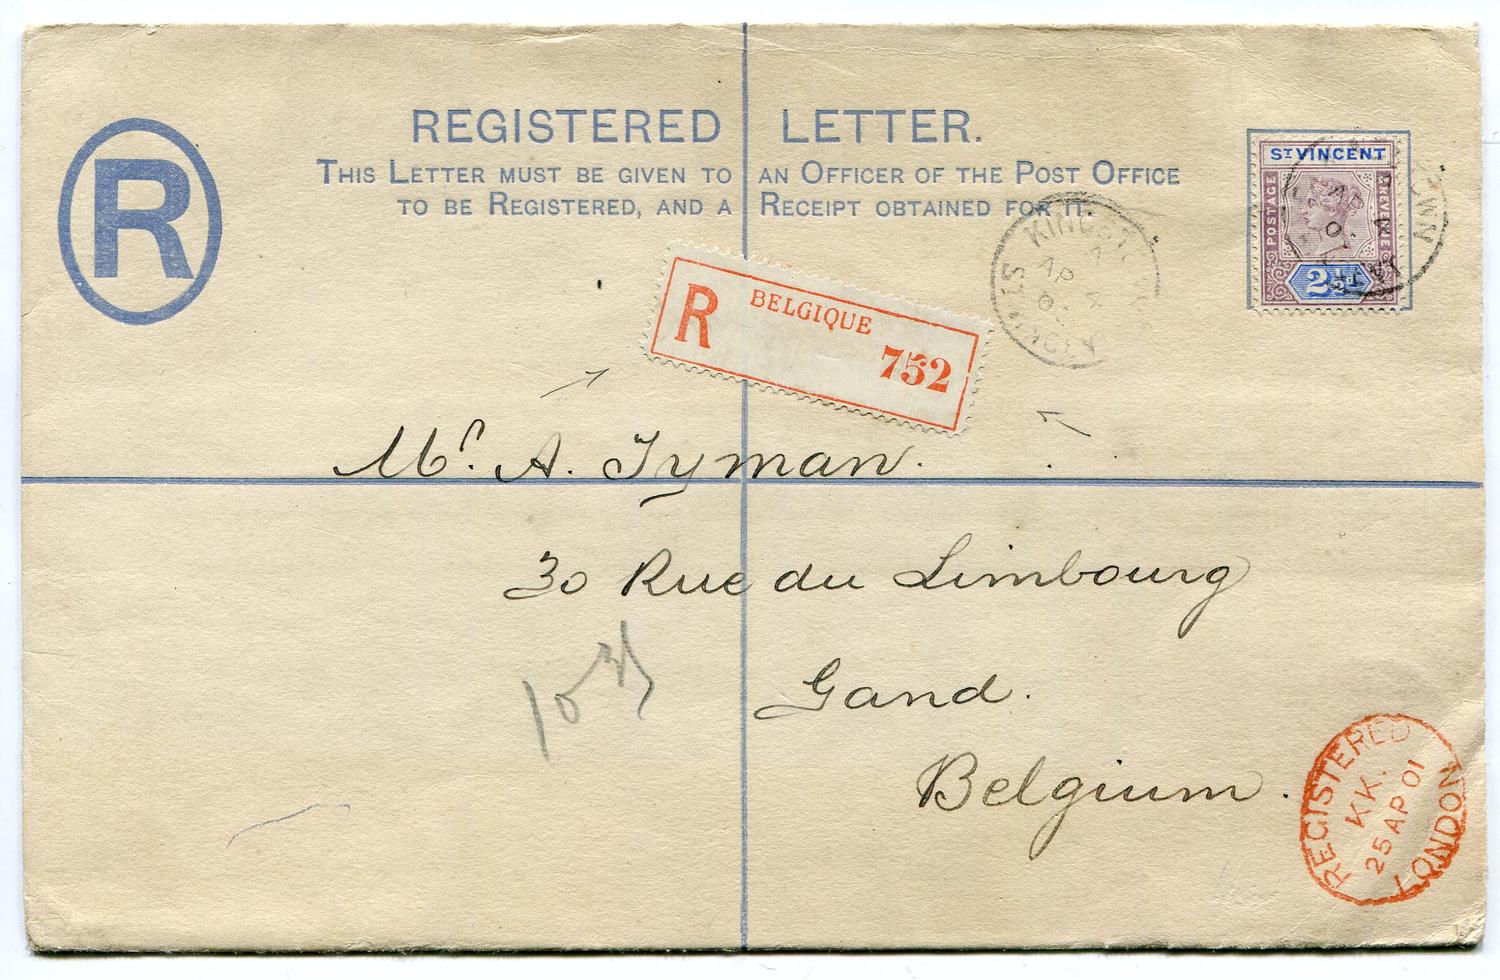 REGISTERED LETTER.
THIS LETTER MUST BE GIVEN TO AN OFFICER OF THE POST OFFICE
TO BE REGISTERED, AND A RECEIPT OBTAINED FOR IT.
R
ST VINCENT
POSTAGE
REVENUE
2½D
R
BELGIQUE
752
KINGSTOWN
ST VINCENT
A
AP 4
Mr. A. Tyman.
30 Rue du Limbourg
Gand.
Belgium.
REGISTERED
KK.
25 AP 01
LONDON